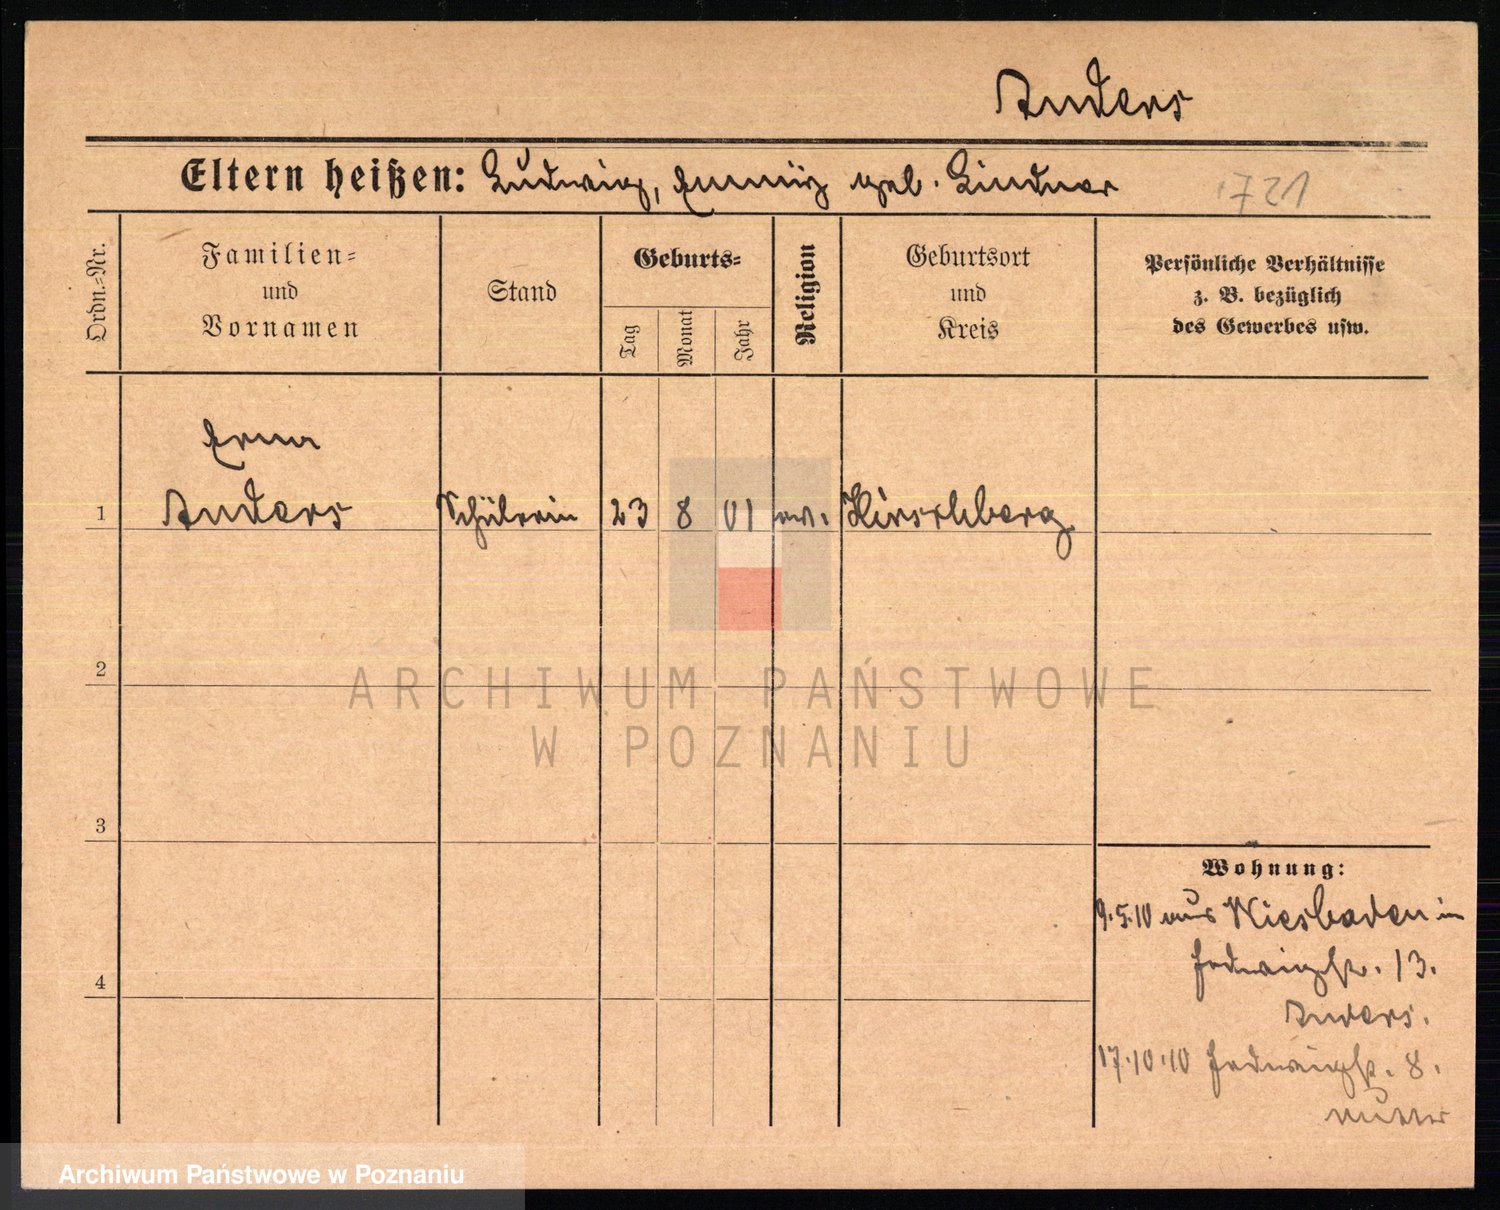 Anders
Eltern heißen: Ludwig, Emmy geb. Lindner
1721
Ordn.-Nr.
Familien-
und
Vornamen
Stand
Geburts-
Tag
Monat
Jahr
Religion
Geburtsort
und
Kreis
Persönliche Verhältnisse
z. B. bezüglich
des Gewerbes usw.
Erna
1 Anders Schülerin 23 8 01 ev. Hirschberg
2
3
4
Wohnung:
9.5.10 aus Wiesbaden in
Hedwigstr. 13.
Anders.
17.10.10 Hedwigstr. 8.
Mutter
ARCHIWUM PAŃSTWOWE
W POZNANIU
Archiwum Państwowe w Poznaniu